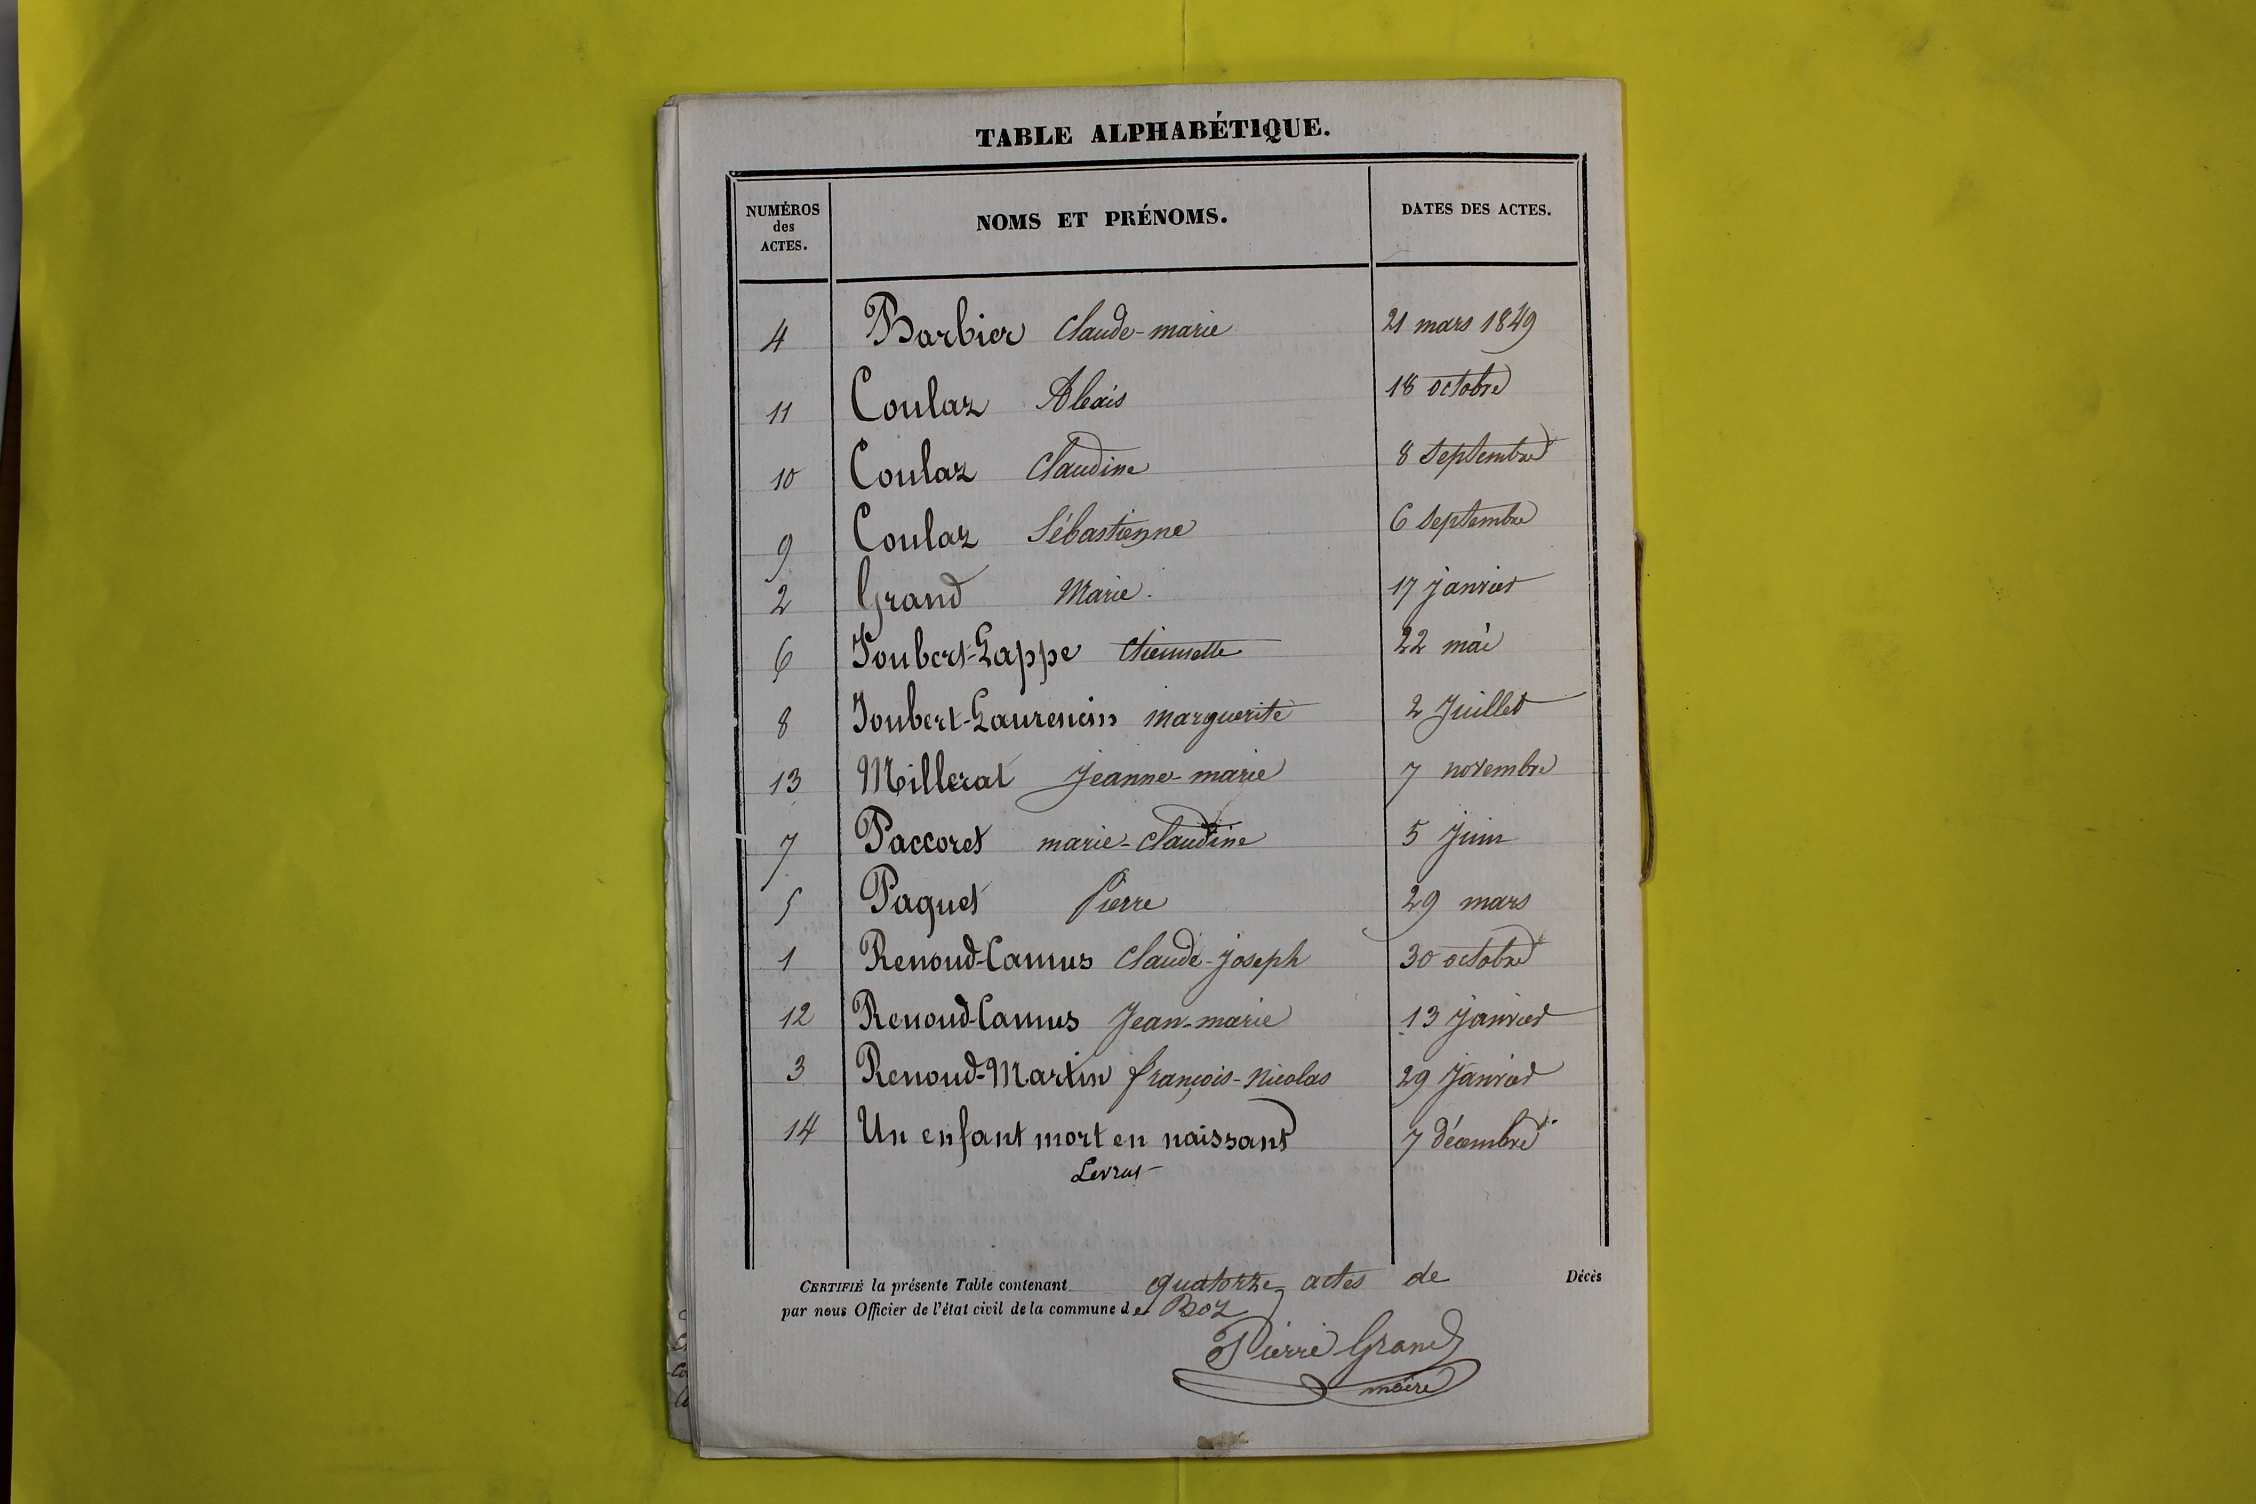 TABLE ALPHABÉTIQUE.
NUMÉROS des ACTES. NOMS ET PRÉNOMS. DATES DES ACTES.
4 Barbier Claude-marie 21 mars 1849
11 Coulaz Alexis 18 octobre
10 Coulaz Claudine 8 Septembre
9 Coulaz Sébastienne 6 Septembre
2 Grand Marie. 17 janvier
6 Joubert-Lappe Etiennette 22 mai
8 Joubert-Laurencin Marguerite 2 Juillet
13 Millerat Jeanne-marie 7 novembre
7 Paccoret marie-Claudine 5 Juin
5 Paquet Pierre 29 mars
1 Renoud-Camus Claude-joseph 30 octobre
12 Renoud-Camus Jean-marie 13 Janvier
3 Renoud-Martin françois-Nicolas 29 Janvier
14 Un enfant mort en naissant 7 décembre
Levrat
CERTIFIÉ la présente Table contenant quatorze actes de Décès
par nous Officier de l'état civil de la commune de Boz
Pierre Grand
maire